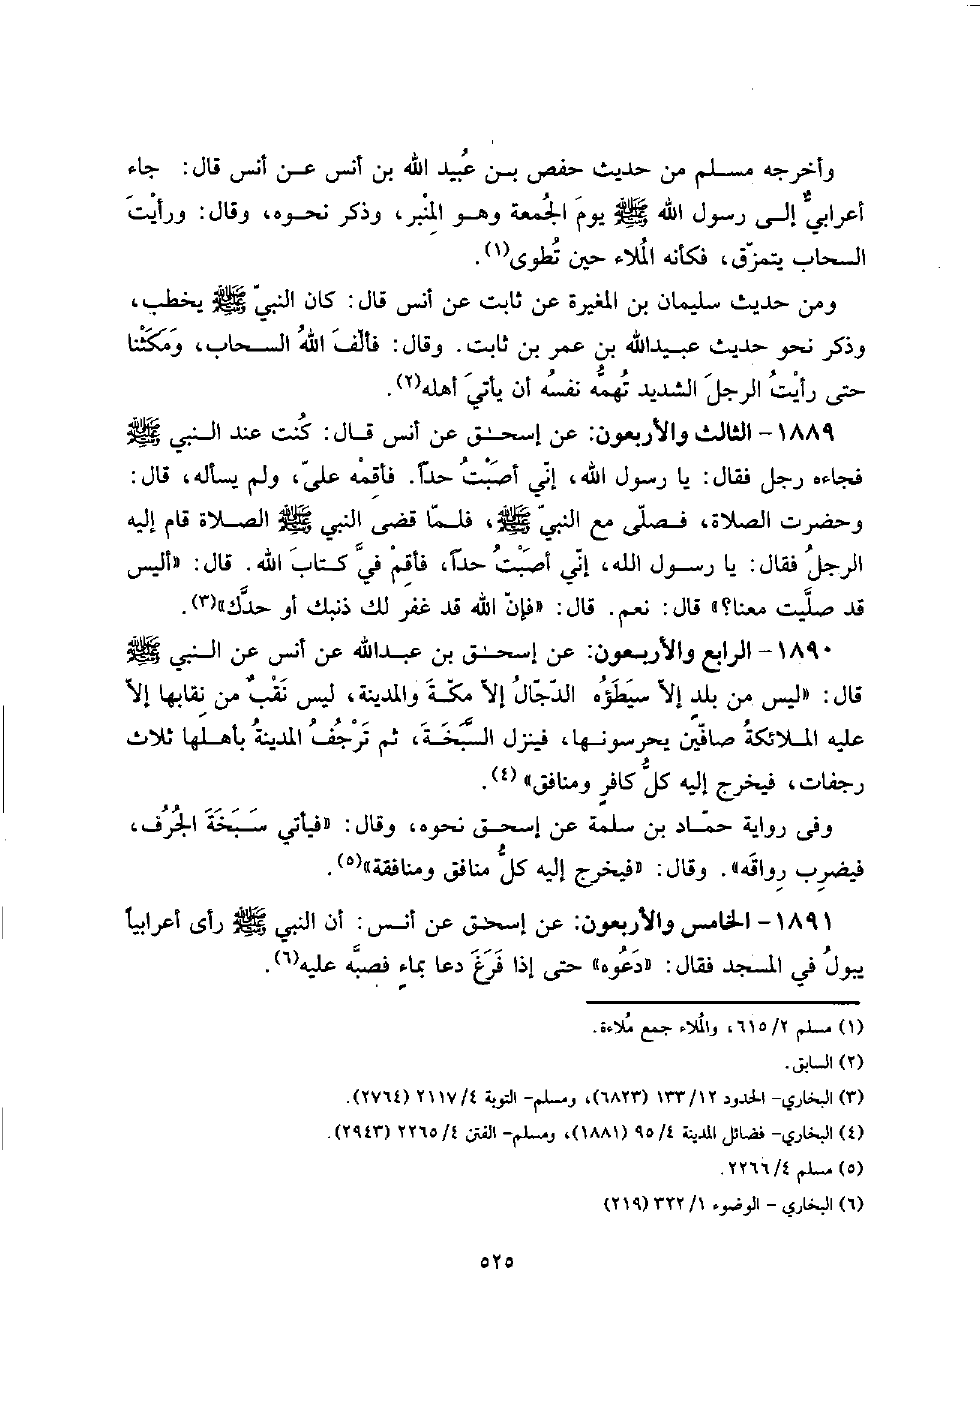 وأخرجه مسلم من حديث حفص بن عُبيد الله بن أنس عن أنس قال: جاء
أعرابيٌّ إلى رسول الله ﷺ يومَ الجُمعة وهو المِنْبر، وذكر نحوه، وقال: ورأيْتَ
السحاب يتمزّق، فكأنه المُلاء حين تُطوى(١).
ومن حديث سليمان بن المغيرة عن ثابت عن أنس قال: كان النبيّ ﷺ يخطب،
وذكر نحو حديث عبيدالله بن عمر بن ثابت. وقال: فألّفَ اللهُ السحاب، ومَكَثْنا
حتى رأيْتُ الرجلَ الشديد تُهمُّه نفسُه أن يأتيَ أهله(٢).
١٨٨٩- الثالث والأربعون: عن إسحق عن أنس قال: كُنت عند النبي ﷺ
فجاءه رجل فقال: يا رسول الله، إنّي أصَبْتُ حداً. فأقِمْه عليّ، ولم يسأله، قال:
وحضرت الصلاة، فصلّى مع النبيّ ﷺ، فلمّا قضى النبي ﷺ الصلاة قام إليه
الرجلُ فقال: يا رسول الله، إنّي أصَبْتُ حداً، فأقِمْ فيَّ كتابَ الله. قال: «أليس
قد صلَّيت معنا؟» قال: نعم. قال: «فإنّ الله قد غفر لك ذنبك أو حدَّك»(٣).
١٨٩٠- الرابع والأربعون: عن إسحق بن عبدالله عن أنس عن النبي ﷺ
قال: «ليس من بلدٍ إلاّ سيَطَؤُه الدّجّالُ إلاّ مكّةَ والمدينة، ليس نَقْبٌ من نِقابها إلاّ
عليه الملائكةُ صافّين يحرسونها، فينزل السَّبَخَةَ، ثم تَرْجُفُ المدينةُ بأهلها ثلاث
رجفات، فيخرج إليه كلُّ كافرٍ ومنافق» (٤).
وفى رواية حمّاد بن سلمة عن إسحق نحوه، وقال: «فيأتي سَبَخَةَ الجُرُف،
فيضرِب رِواقَه». وقال: «فيخرج إليه كلُّ منافق ومنافقة»(٥).
١٨٩١- الخامس والأربعون: عن إسحق عن أنس: أن النبي ﷺ رأى أعرابياً
يبولُ في المسجد فقال: «دَعُوه» حتى إذا فَرَغَ دعا بماءٍ فصبَّه عليه(٦).
(١) مسلم ٢/ ٦١٥، والمُلاء جمع مُلاءة.
(٢) السابق.
(٣) البخاري- الحدود ١٢/ ١٣٣ (٦٨٢٣)، ومسلم- التوبة ٤/ ٢١١٧ (٢٧٦٤).
(٤) البخاري- فضائل المدينة ٤/ ٩٥ (١٨٨١)، ومسلم- الفتن ٤/ ٢٢٦٥ (٢٩٤٣).
(٥) مسلم ٤/ ٢٢٦٦.
(٦) البخاري - الوضوء ١/ ٣٢٢ (٢١٩)
٥٢٥